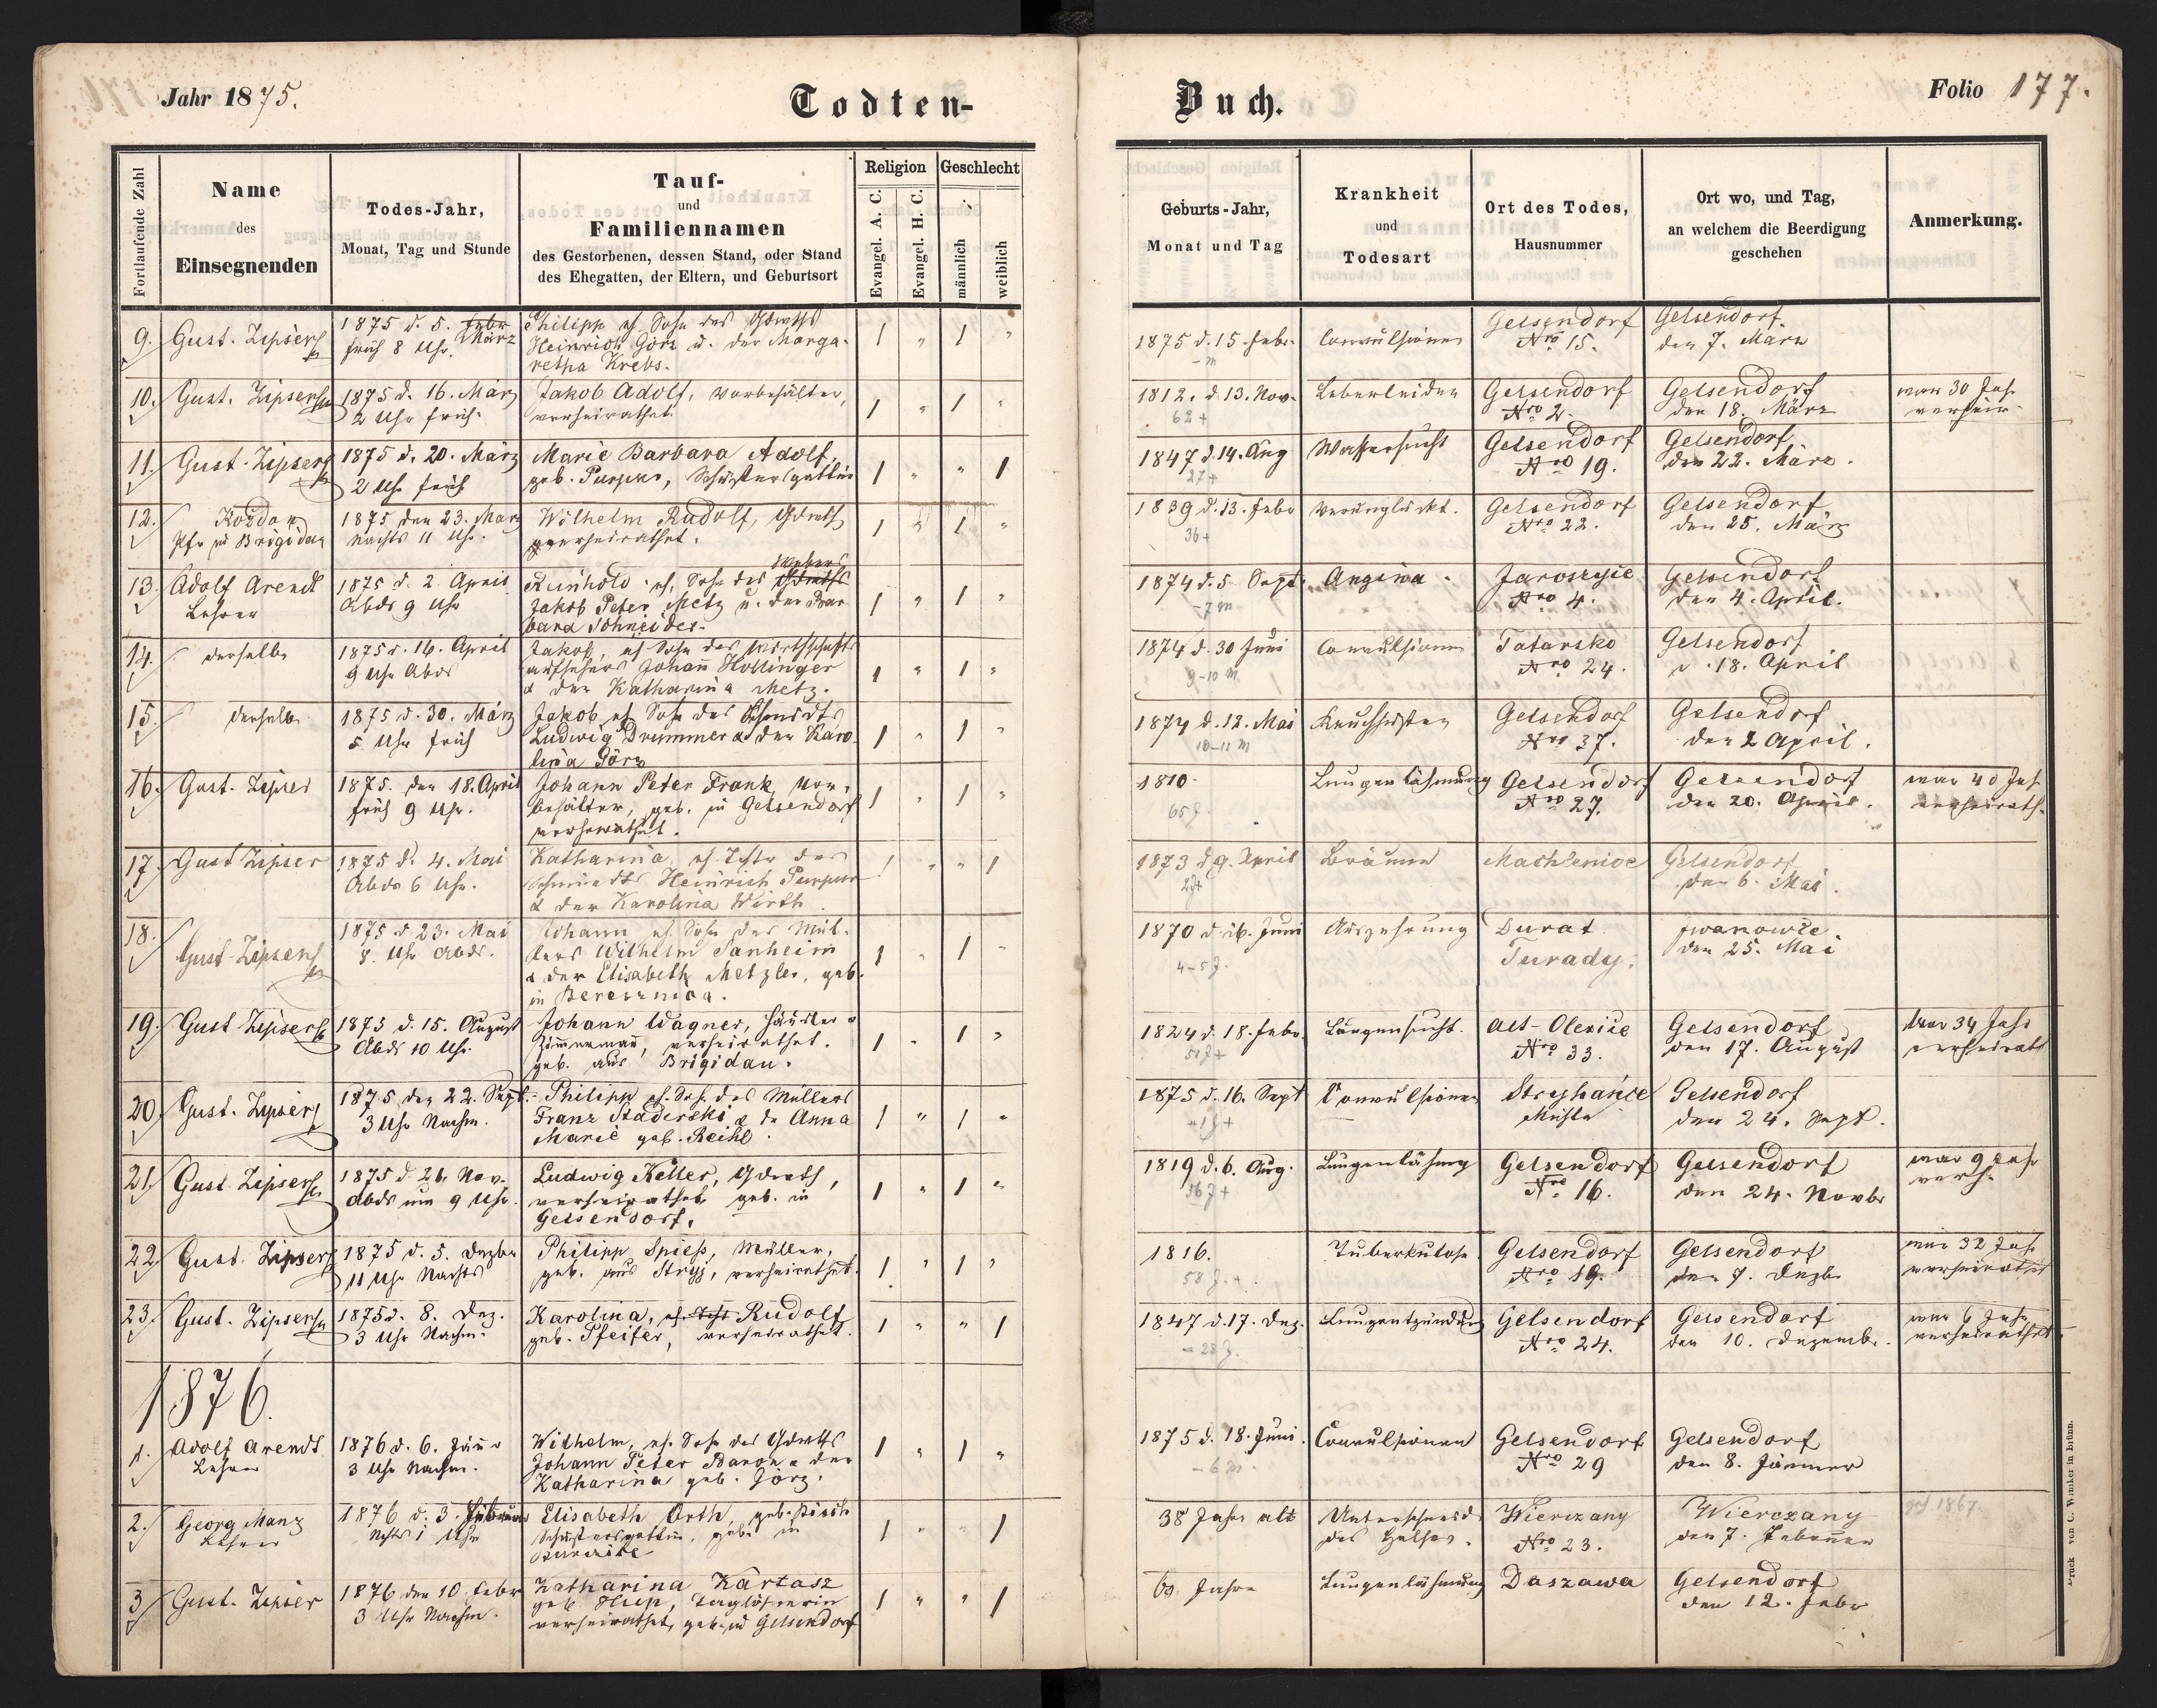 Jahr 1875.
Todten-
Buch.
Folio 177.
Fortlaufende Zahl
Name
des
Einsegnenden
Todes-Jahr,
Monat, Tag und Stunde
Tauf-
und
Familiennamen
des Gestorbenen, dessen Stand, oder Stand
des Ehegatten, der Eltern, und Geburtsort
Religion
Evangel. A. C.
Evangel. H. C.
Geschlecht
männlich
weiblich
Geburts-Jahr,
Monat und Tag
Krankheit
und
Todesart
Ort des Todes,
Hausnummer
Ort wo, und Tag,
an welchem die Beerdigung
geschehen
Anmerkung.
9. Gust. Zipser
1875 d. 5. Febr März
früh 8 Uhr.
Philipp eh. Sohn des Gdwths
Heinrich Görz u. der Marga-
retha Krebs.
1 " 1 "
1875 d. 15. Febr.
- m
Convulsionen
Gelsendorf
Nro 15.
Gelsendorf
den 7. März
10. Gust. Zipser
1875 d. 16. März
2 Uhr früh.
Jakob Adolf, Vorbehälter,
verheirathet.
1 " 1 "
1812. d. 13. Nov.
62 +
Leberleiden
Gelsendorf
Nro 2.
Gelsendorf
den 18. März
war 30 Jah.
verheir.
11. Gust. Zipser
1875 d. 20. März
2 Uhr früh
Marie Barbara Adolf,
geb. Purpur, Schustersgattin
1 " " 1
1847 d. 14. Aug
27 +
Wassersucht
Gelsendorf
Nro 19.
Gelsendorf,
den 22. März.
12. Kozdon
Pfr zu Brigidau
1875 den 23. März
Nachts 11 Uhr.
Wilhelm Rudolf, Gdwth
verheirathet.
1 " 1 "
1839 d. 13. Febr
36 +
verunglückt.
Gelsendorf
Nro 22.
Gelsendorf
den 25. März
13. Adolf Arendt
Lehrer
1875 d. 2 April
Abds 9 Uhr
Weber
Reinhold eh. Sohn des Gdwths
Jakob Peter Metz u. der Bar
bara Schneider.
1 " 1 "
1874 d. 5. Sept.
- 7 m
Angina.
Jaroszyie
Nro 4.
Gelsendorf
den 4. April.
14. derselbe
1875 d. 16. April
9 Uhr Abds
Jakob, eh Sohn des Wirthschafts
aufsehers Johann Hollinger
& der Katharina Metz.
1 " 1 "
1874 d. 30 Juni
9-10 m
Convulsionen
Tatarsko
Nro 24.
Gelsendorf
d. 18. April
15. derselbe
1875 d. 30. März
5 Uhr früh
Jakob eh Sohn des Schmidts
Ludwig Drummer & der Karo-
lina Görz
1 " 1 "
1874 d. 12. Mai
10-11 m
Keuchhusten
Gelsendorf
Nro 37.
Gelsendorf
den 2 April.
16. Gust. Zipser
1875. den 18. April
früh 9 Uhr.
Johann Peter Frank, Vor-
behälter, geb. in Gelsendorf
verheirathet.
1 " 1 "
1810
65 J.
Lungenlähmung
Gelsendorf
Nro 27.
Gelsendorf
den 20. April.
war 40 Jah
verheirath.
17. Gust Zipser
1875 d. 4. Mai
Abds 6 Uhr.
Katharina, eh. Tchtr des
Schmiedts Heinrich Purpur
& der Karolina Wirth.
1 " " 1
1873 d 9. April
2J+
Bräune
Machlenice
Gelsendorf
den 6. Mai.
18. Gust. Zipser
1875 d 23. Mai
8. Uhr Abds.
Johann eh. Sohn des Mül-
lers Wilhelm Sanheim
& der Elisabeth Metzler, geb.
in Beresznica.
1 " 1 "
1870 d. 16. Juni
4-5 J.
Auszehrung
Durat
Turady.
Iwanowce.
den 25. Mai
19. Gust Zipser
1875 d. 15. August
Abds 10 Uhr.
Johann Wagner, Häusler &
Zimmermann, verheirathet.
geb. aus Brigidau.
1 " 1 "
1824 d. 18. Febr.
51 J +
Lungensucht.
Alt-Olexice
Nro 33.
Gelsendorf
den 17. August
war 34 Jahr
verheirath
20. Gust. Zipser
1875 den 22. Sept.
3 Uhr Nachm.
Philipp eh. Soh. des Müllers
Franz Staderski & der Anna
Marie geb. Reihl.
1 " 1 "
1875 d. 16. Sept
Convulsionen
Stryhańce
Mühle
Gelsendorf
den 24. Sept.
21. Gust Zipser
1875 d. 21. Nov.
Abds um 9 Uhr.
Ludwig Keller, Gdwth,
verheirathet geb. in
Gelsendorf.
1 " 1 "
1819 d. 6. Aug.
56 J +
Lungenlähmg
Gelsendorf
Nro 16.
Gelsendorf
den 24. Novbr
war 9 Jahr
verh.
22. Gust. Zipser
1875 d. 5. Dezbr
11 Uhr Nachts
Philipp Spiess, Müller,
geb. aus Stryj, verheirathet.
1 " 1 "
1816.
58 J. +
Tuberkulose.
Gelsendorf
Nro 19.
Gelsendorf
den 7. Dezbr
war 32 Jahr
verheirathet
23. Gust. Zipser
1875 d. 8. Dez.
3 Uhr Nachm.
Karolina, eh. Tcht Rudolf
geb. Pfeifer, verheirathet.
1 " " 1
1847 d. 17. Dez.
- 28 J.
Lungentzündung
Gelsendorf
Nro 24.
Gelsendorf
den 10. Dezembr.
war 6 Jahr
verheirathet
1876.
1. Adolf Arendt
Lehrer
1876 d. 6. Jänner
3 Uhr Nachm.
Wilhelm, eh. Sohn des Gdwths
Johann Peter Baron & der
Katharina geb. Jörz.
1 " 1 "
1875 d. 18. Juni.
- 6 m.
Convulsionen
Gelsendorf
Nro 29
Gelsendorf
den 8. Jänner
2. Georg Manz
Lehrer
1876 d. 3. Februar
Nchts 1 Uhr
Elisabeth Orth, geb.
Schustersgattin, geb. in
1 " " 1
38 Jahr alt
des Halses.
Wierczany
Nro 23.
Wierczany
den 7. Februar
1867.
3 Gust. Zipser
1876 den 10. Febr
3 Uhr Nachm.
Katharina Kartasz
geb Hup, Taglöhnerin
verheirathet, geb. in Gelsendorf
1 " " 1
60 Jahre
Lungenlähmung
Daszawa
Gelsendorf
den 12. Febr
Druck von C. Winiker in Brünn.